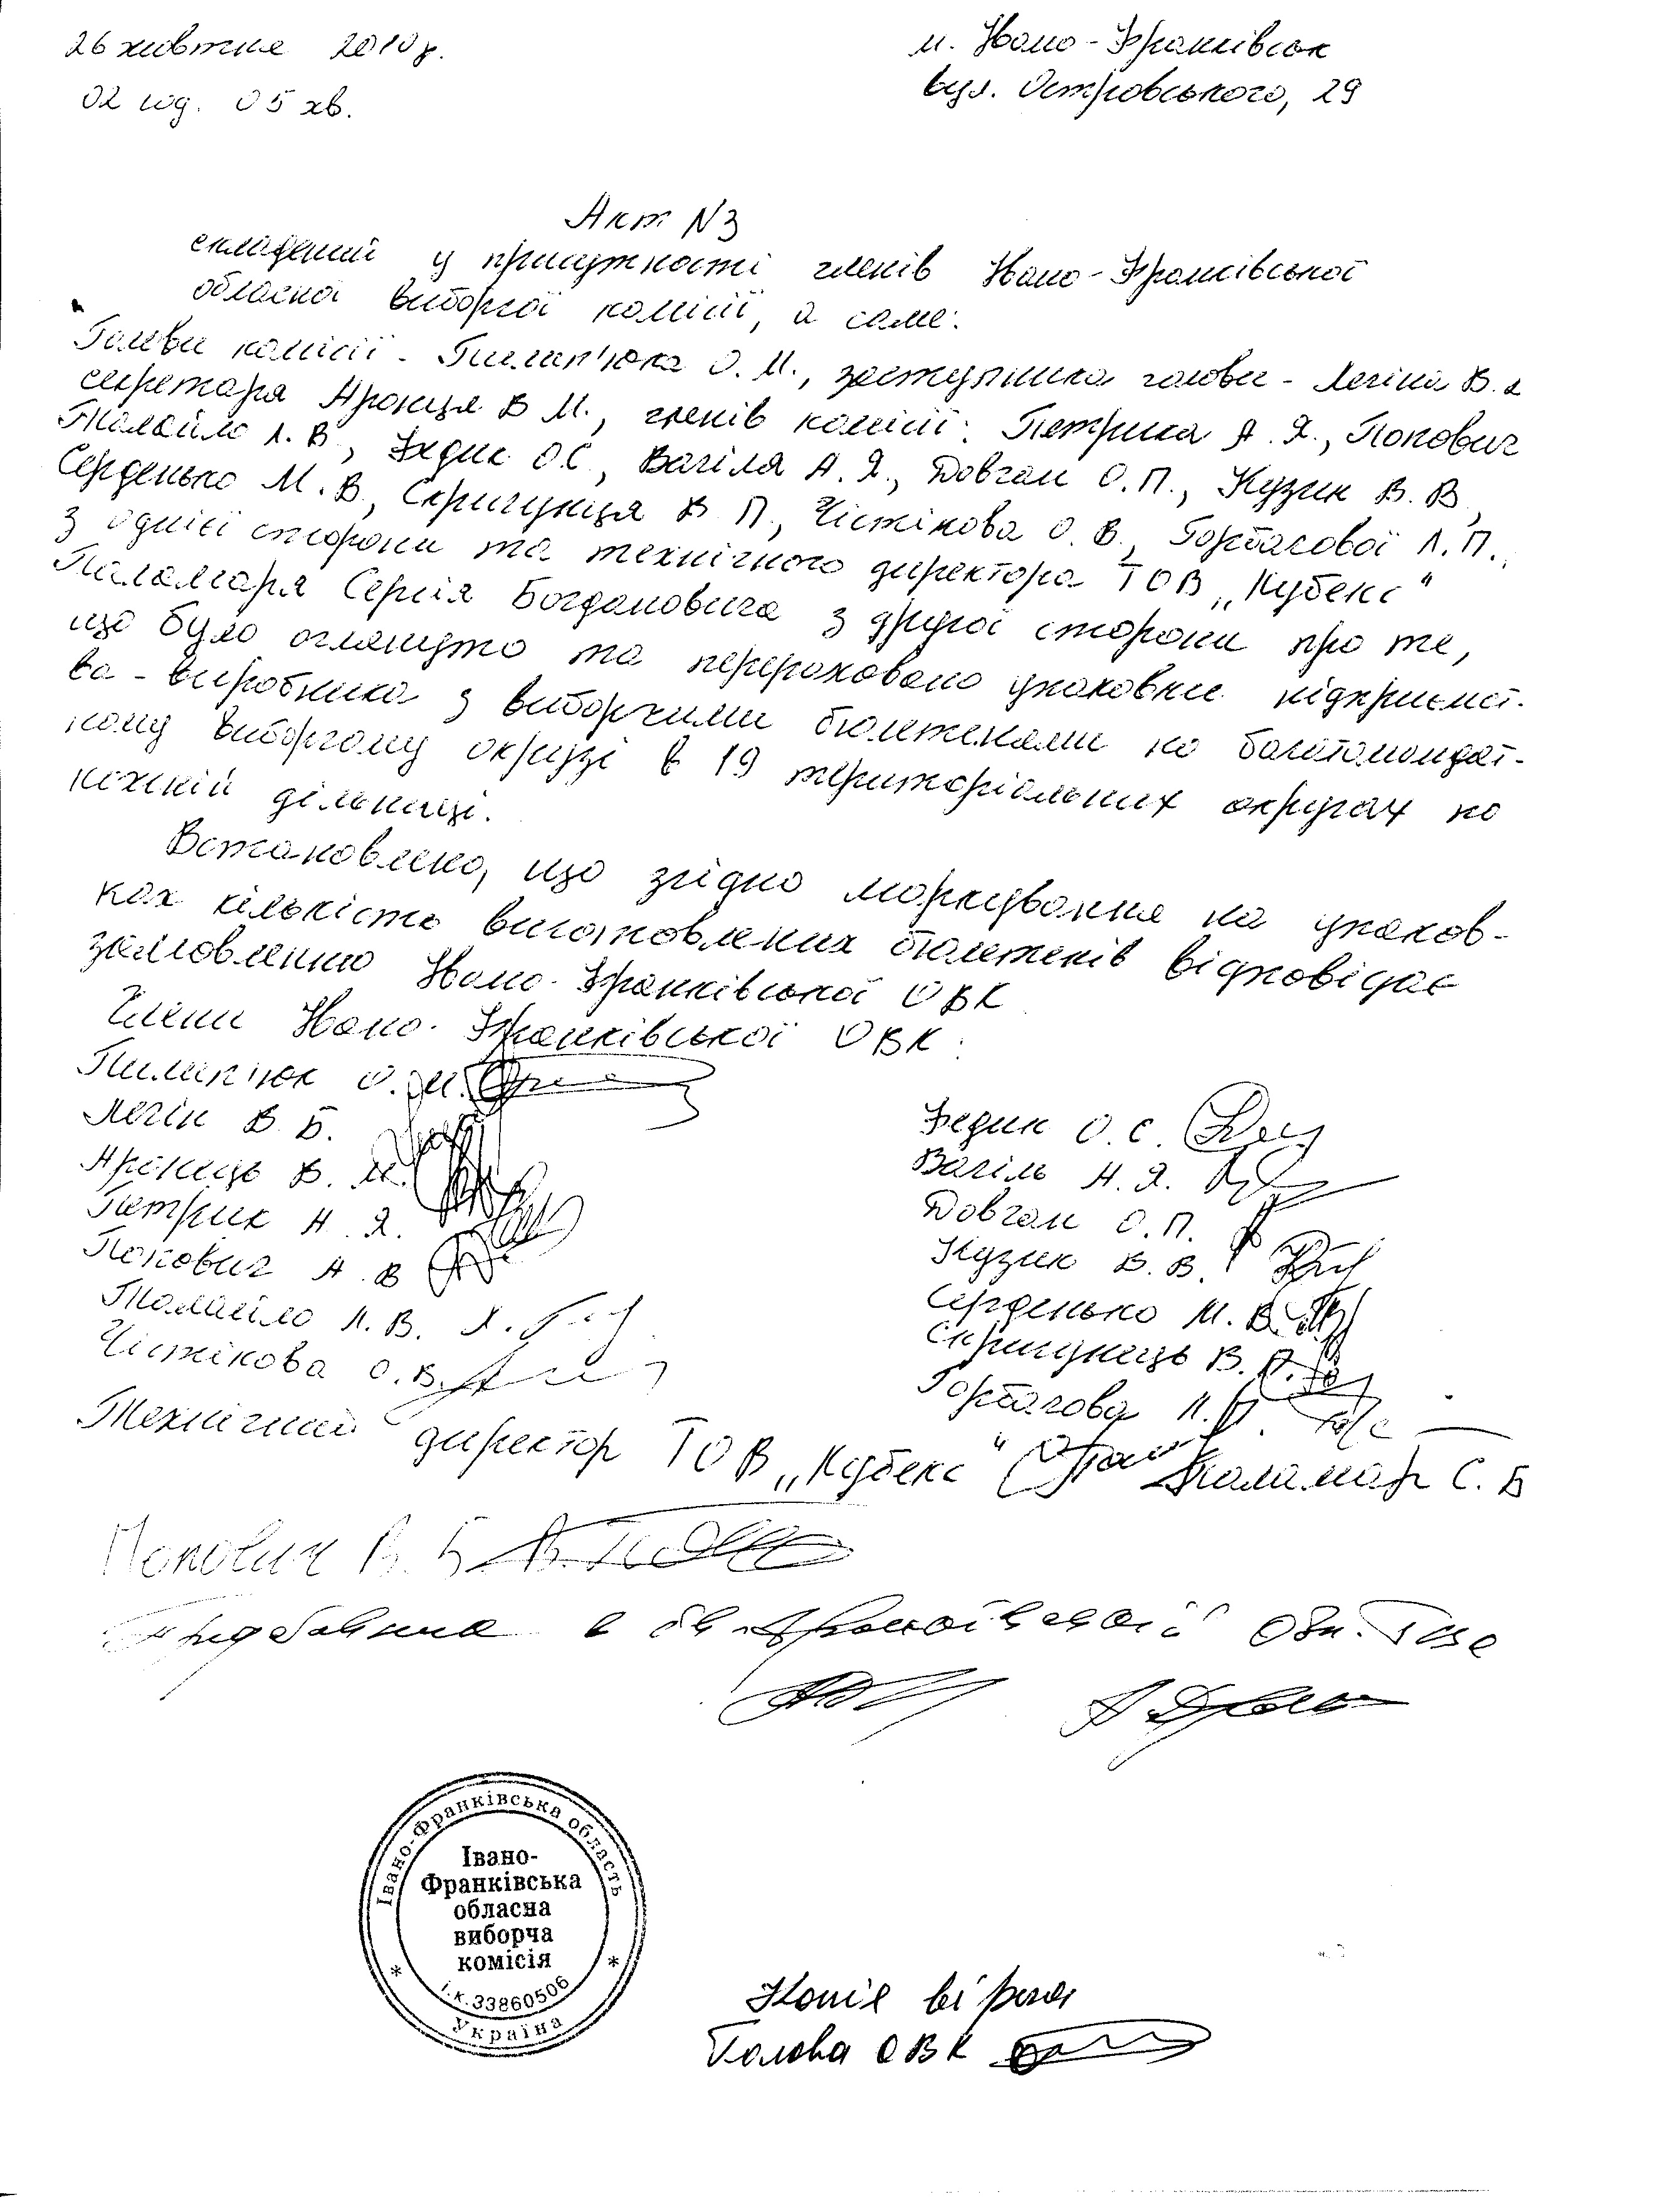 26 жовтня 2010 р.
м. Івано-Франківськ
02 год. 05 хв.
вул. Островського, 29
Акт N3
складений у присутності членів Івано-Франківської
обласної виборчої комісії, а саме:
Голови комісії - Пилип'юка О.М., заступника голови - Легіна В.
секретаря Яронця В М., членів комісії: Петрика А.Я., Попович
Талайло Л.В., Федик О.С., Вагіля А.Я., Довган О.П., Кузик В.В.,
Серденько М.В., Скрипунця В П., Чістікова О.В., Горбачової Л.П.,
з однієї сторони та технічного директора ТОВ „Кубекс“
Паламаря Сергія Богдановича з другої сторони про те,
що було оглянуто та перераховано упаковки підприємст-
ва-виробника з виборчими бюлетенями по багатомандат-
ному виборчому окрузі в 19 територіальних округах по
кожній дільниці.
Встановлено, що згідно маркування на упаков-
ках кількість виготовлених бюлетенів відповідає
замовленню Івано-Франківської ОВК
Члени Івано-Франківської ОВК:
Пилип'юк О.М.
Легін В.Б.
Федик О.С.
Яронець В.М.
Вагіль А.Я.
Петрик А.Я.
Довган О.П.
Попович А.В
Кузик В.В.
Талайло Л.В.
Серденько М.В.
Чістікова О.В.
Скрипунець В.П.
Горбачова Л.П.
Технічний директор ТОВ „Кубекс“ Паламар С.Б
Попович В.Б
Івано-Франківська область
Івано-
Франківська
обласна
виборча
комісія
і.к.33860506
Україна
Копія вірна
Голова ОВК